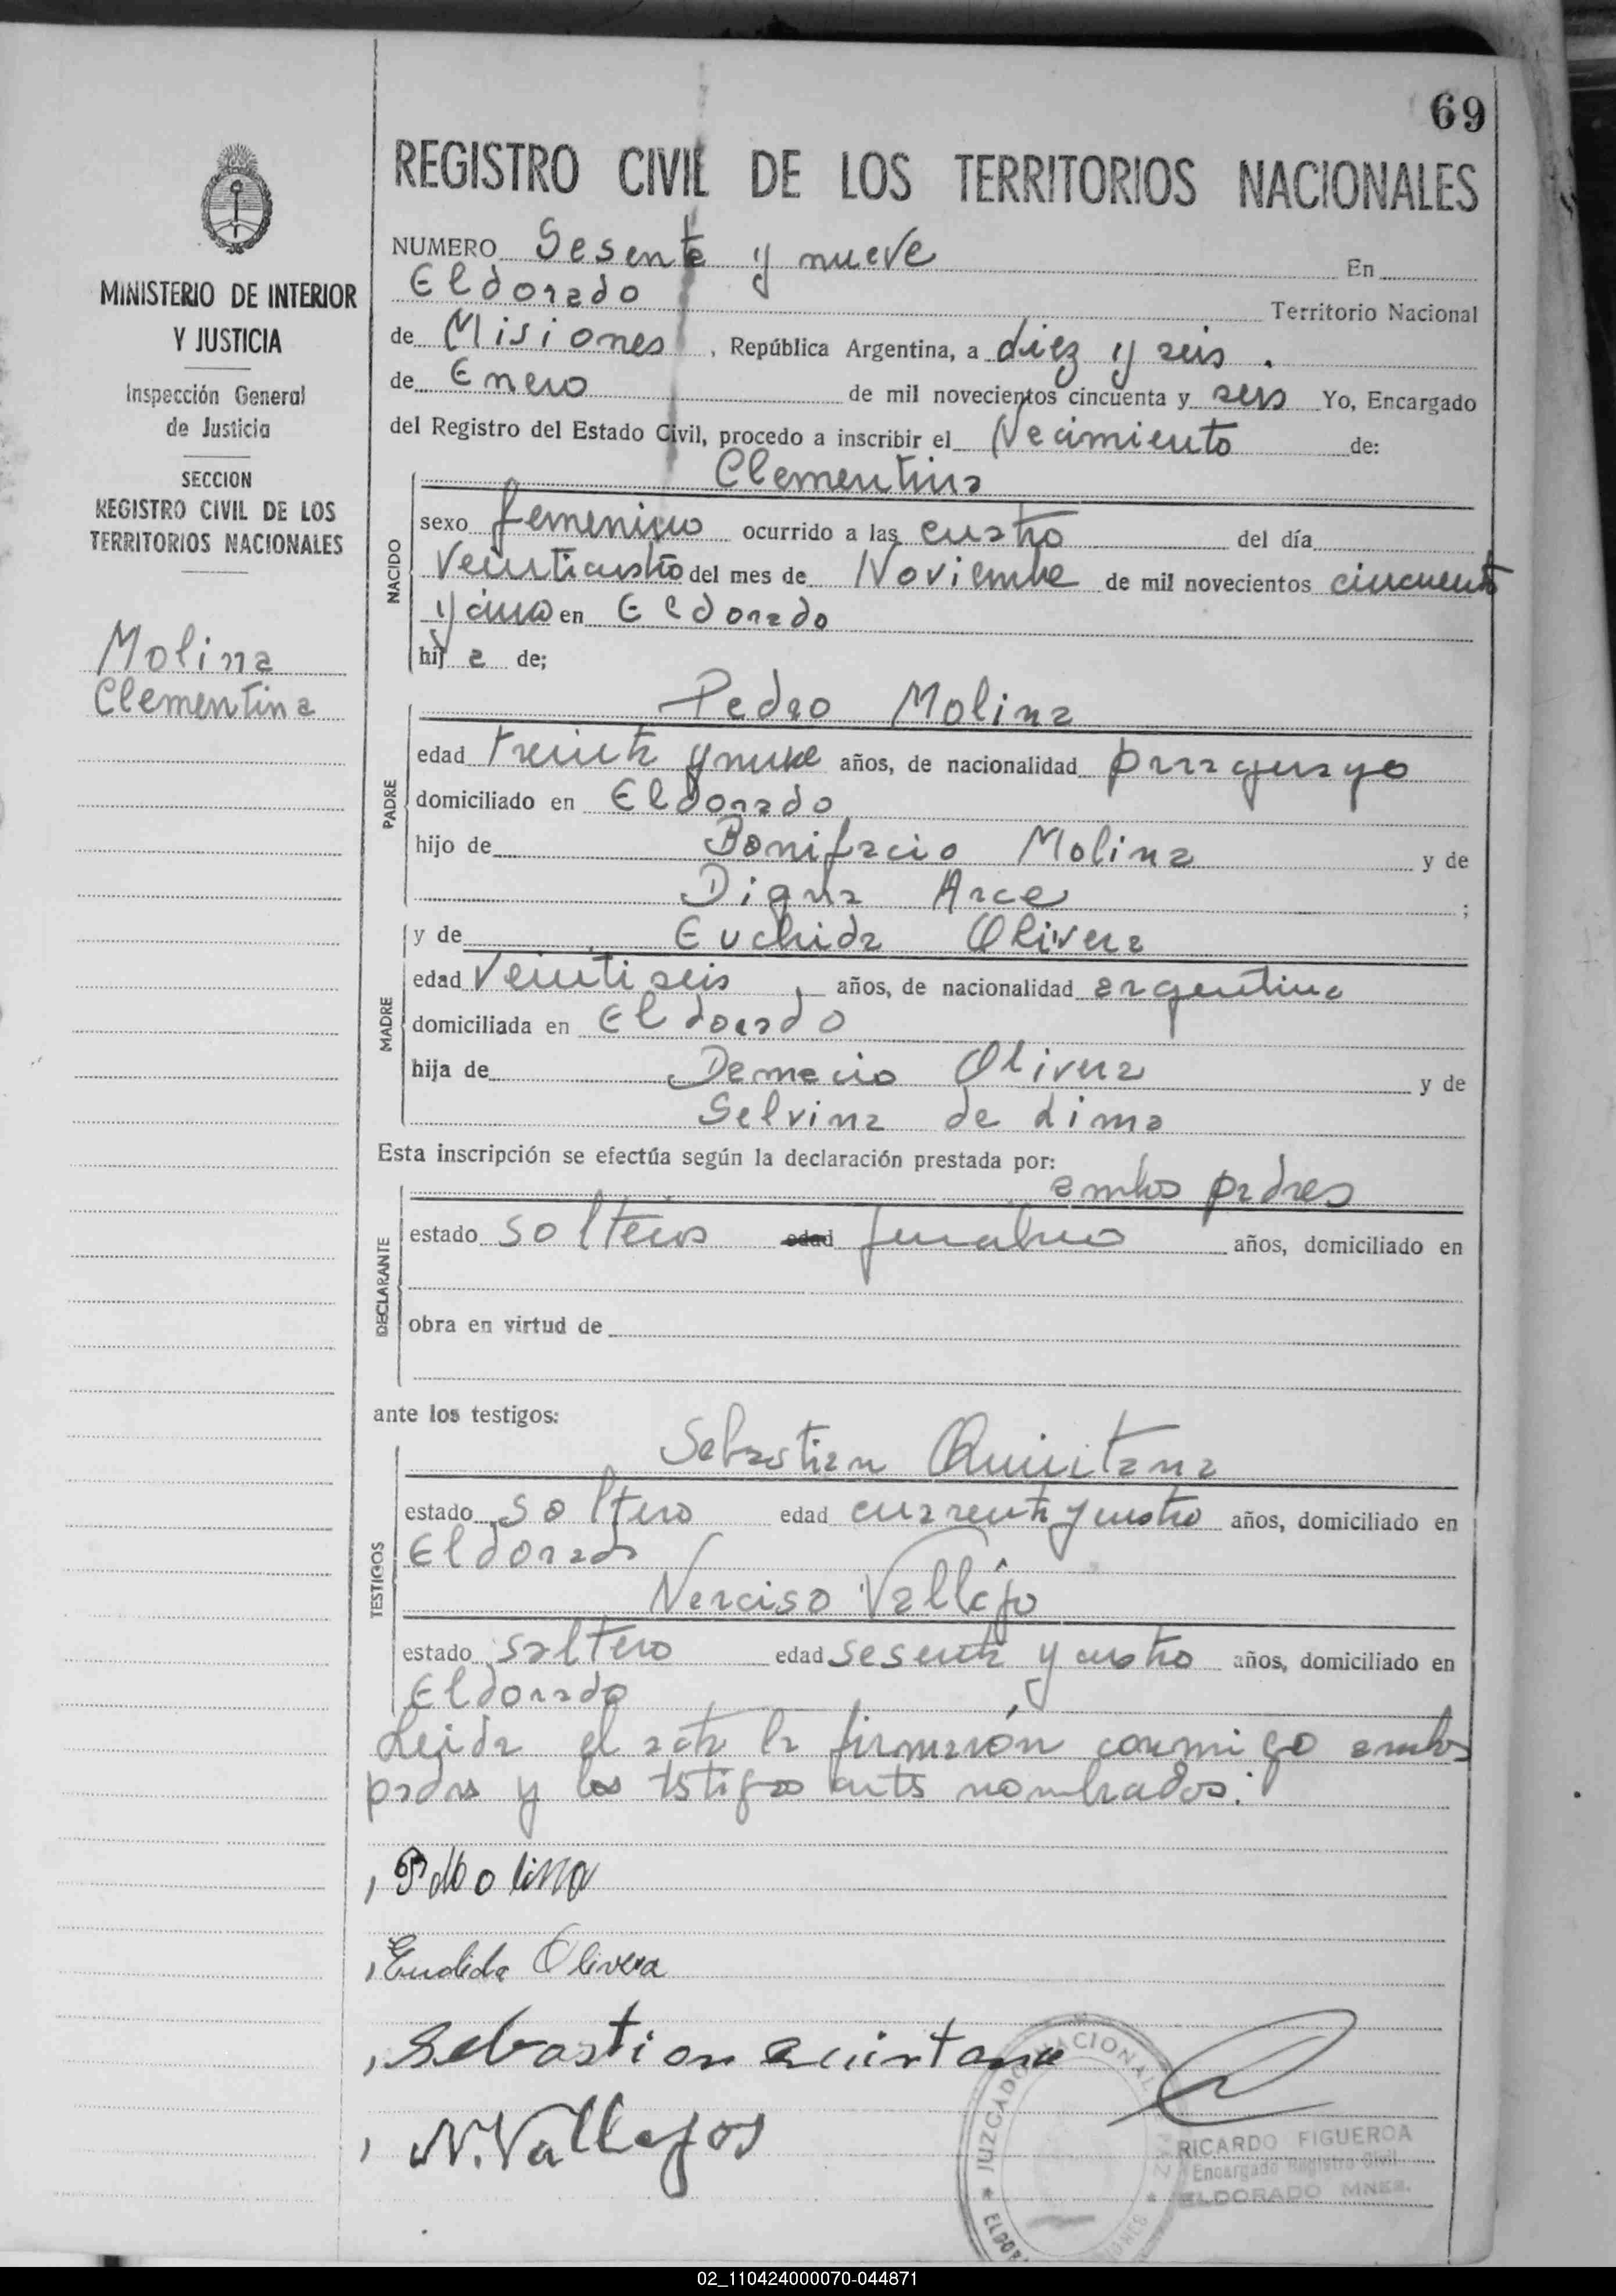 69
REGISTRO CIVIL DE LOS TERRITORIOS NACIONALES
NUMERO Sesenta y nueve En
Eldorado Territorio Nacional
de Misiones, República Argentina, a diez y seis.
de Enero de mil novecientos cincuenta y seis Yo, Encargado
del Registro del Estado Civil, procedo a inscribir el Nacimiento de:
Clementina
NACIDO
sexo femenino ocurrido a las cuatro del día
Veinticuatro del mes de Noviembre de mil novecientos cincuenta
y cinco en Eldorado
hij a de;
MINISTERIO DE INTERIOR
Y JUSTICIA
Inspección General
de Justicia
SECCION
REGISTRO CIVIL DE LOS
TERRITORIOS NACIONALES
Molina
Clementina
Pedro Molina
PADRE
edad treinta y nueve años, de nacionalidad paraguayo
domiciliado en Eldorado
hijo de Bonifacio Molina y de
Digna Arce ;
y de Euclida Olivera
MADRE
edad Veintiseis años, de nacionalidad argentina
domiciliada en Eldorado
hija de Damacio Olivera y de
Selvina de Lima
Esta inscripción se efectúa según la declaración prestada por:
ambos padres
DECLARANTE
estado solteros edad años, domiciliado en
obra en virtud de
ante los testigos:
Sebastian Quintana
TESTIGOS
estado soltero edad cuarenta y cuatro años, domiciliado en
Eldorado
Narciso Vallejo
estado soltero edad sesenta y cuatro años, domiciliado en
Eldorado
Leida el acta la firmarón conmigo ambos
padres y los testigos antes nombrados:
P Molina
Euclida Olivera
Sebastian Quintana
N. Vallejos
JUZGADO NACIONAL
ELDOR
RICARDO FIGUEROA
Encargado Registro Civil
ELDORADO MNES.
02_110424000070-044871